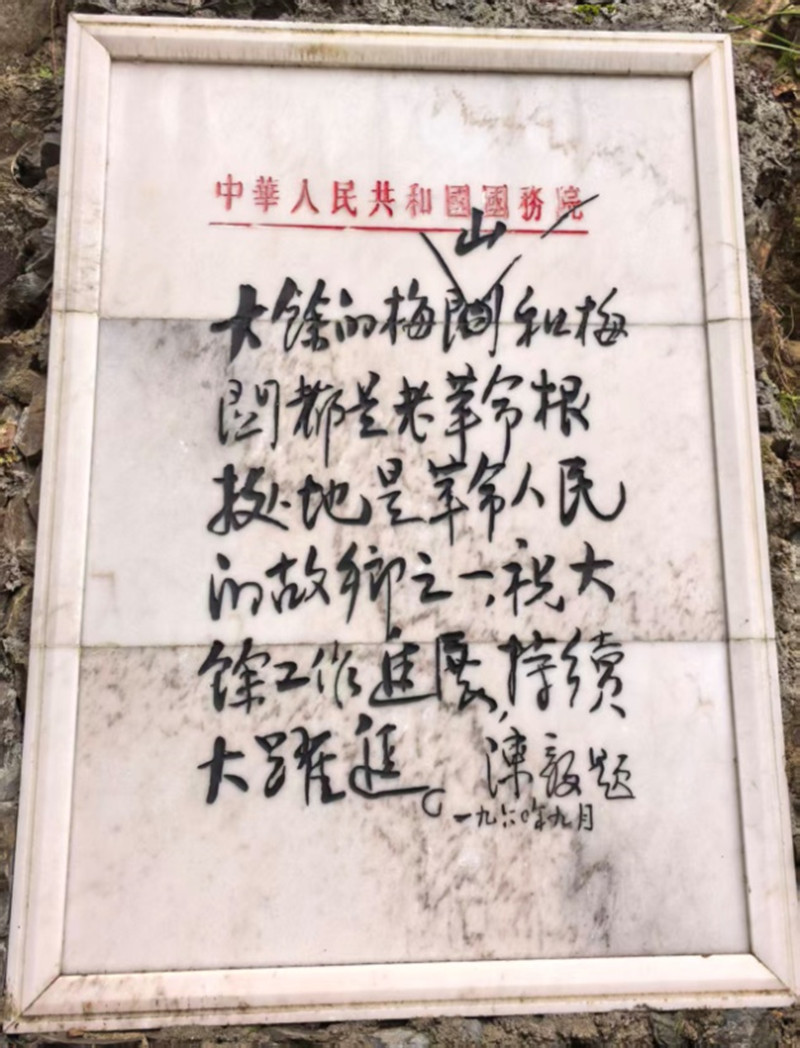 中華人民共和國國務院
山
大餘的梅關和梅
關都是老革命根
據地是革命人民
的故鄉之一,祝大
餘工作進展,持續
大躍進。陳毅題
一九六〇年九月